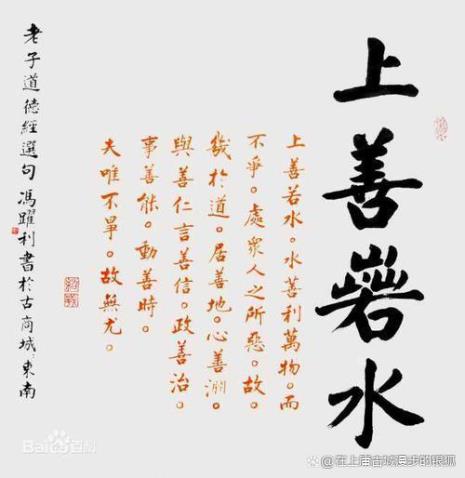 上善若水
上善若水。水善利萬物。而
不爭。處衆人之所惡。故。
幾於道。居善地。心善淵。
與善仁言善信。政善治。
事善能。動善時。
夫唯不爭。故無尤。
老子道德經選句馮躍利書於古商城東南
Baidu百科